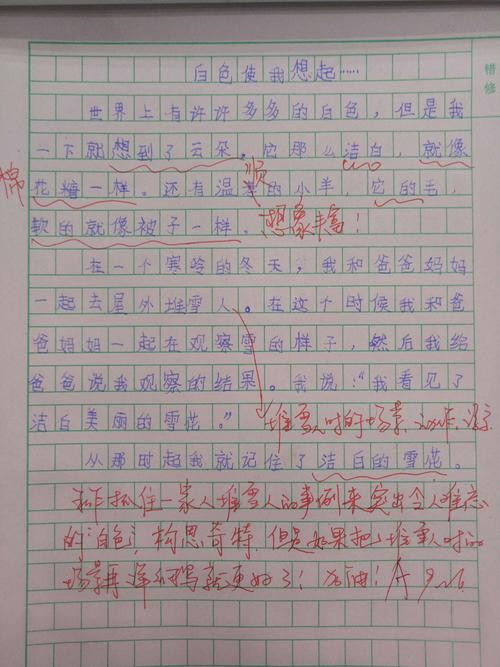 白色使我想起……
错修
世界上有许许多多的白色，但是我
一下就想到了云朵。它那么洁白，就像
棉
花糖一样。还有温顺的小羊，它的毛，
软的就像被子一样。想象丰富！
在一个寒冷的冬天，我和爸爸妈妈
一起去屋外堆雪人。在这个时候我和爸
爸妈妈一起在观察雪的样子，然后我给
爸爸说我观察的结果。我说：“我看见了
洁白美丽的雪花。”
堆雪人时的场景、动作、语言
从那时起我就记住了洁白的雪花。
抓住一家人堆雪人的事例来突出令人难忘
的白色，构思奇特，但是如果把堆雪人时的
场景再详细写就更好了！加油！A